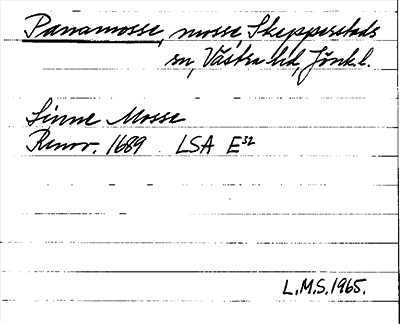 Panamosse, mosse Skepperstads
sn, Västra hd, Jönk.l.
Linne Mosse
Renov. 1689 LSA E³²
L.M.S. 1965.